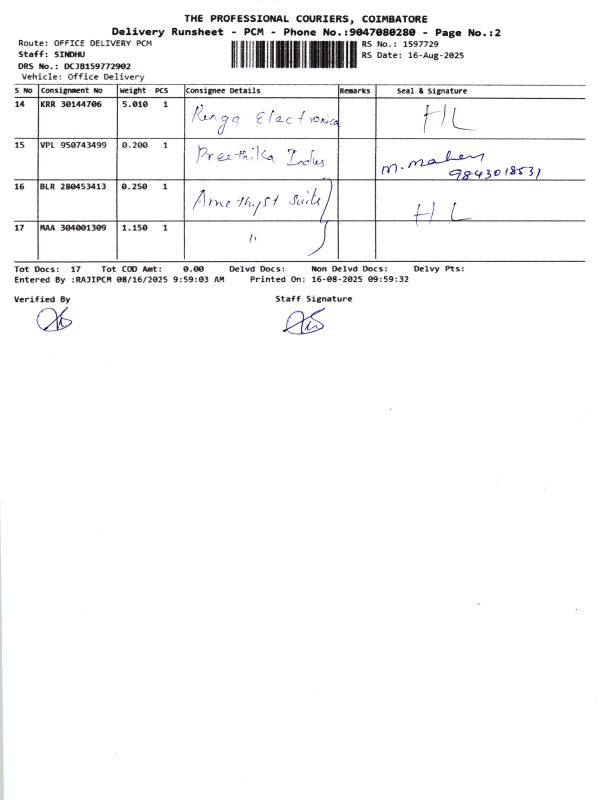 THE PROFESSIONAL COURIERS, COIMBATORE
Delivery Runsheet - PCM - Phone No.:9047080280 - Page No.:2
Route: OFFICE DELIVERY PCM
RS No.: 1597729
Staff: SINDHU
RS Date: 16-Aug-2025
DRS No.: DCJB159772902
Vehicle: Office Delivery
S No Consignment No Weight PCS Consignee Details Remarks Seal & Signature
14 KRR 30144706 5.010 1 Renga Electronics HL
15 VPL 950743499 0.200 1 Preethika Indus M. Mahes
9843018531
16 BLR 280453413 0.250 1 Amethyst Suite HL
17 MAA 304001309 1.150 1 "
Tot Docs: 17 Tot COD Amt: 0.00 Delvd Docs: Non Delvd Docs: Delvy Pts:
Entered By :RAJIPCM 08/16/2025 9:59:03 AM Printed On: 16-08-2025 09:59:32
Verified By Staff Signature